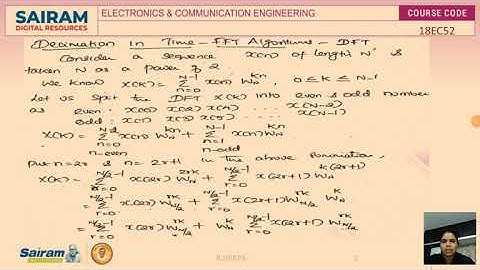 SAIRAM
DIGITAL RESOURCES
ELECTRONICS & COMMUNICATION ENGINEERING
COURSE CODE
18EC52
Decimation In Time - FFT Algorithms - DFT
Consider a sequence x(n) of length 'N' is
taken N as a power of 2.
We know X(K) = Σ_{n=0}^{N-1} x(n) W_N^{kn}, 0 ≤ K ≤ N-1
Let us split the DFT X(K) into even & odd number
as even: x(0) x(2) x(4) ..... x(N-2)
odd: x(1) x(3) x(5) ..... x(N-1)
X(K) = Σ_{n=0}^{N-2} x(n) W_N^{kn} + Σ_{n=1}^{N-1} x(n) W_N^{kn}
n-even n-odd
Put n=2r & n=2r+1 in the above
X(K) = Σ_{r=0}^{N/2-1} x(2r) W_N^{2rk} + Σ_{r=0}^{N/2-1} x(2r+1) W_N^{k(2r+1)}
= Σ_{r=0}^{N/2-1} x(2r) W_{N/2}^{rk} + Σ_{r=0}^{N/2-1} x(2r+1) W_{N/2}^{rk} W_N^{k}
= Σ_{r=0}^{N/2-1} x(2r) W_{N/2}^{rk} + W_N^{k} Σ_{r=0}^{N/2-1} x(2r+1) W_{N/2}^{rk}
Sairam